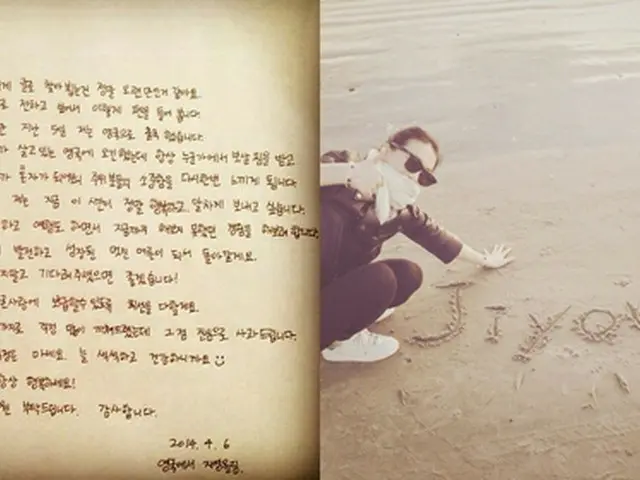 글로 찾아뵙는건 정말 오랜만인거 같아요.
전하고 싶어서 이렇게 펜을 들어 봅니다.
지난 5일 저는 영국으로 출국 했습니다.
살고있는 영국에 오긴했는데 항상 누군가에서 보살핌을 받고
혼자가 되어보니 주위분들의 소중함을 다시한번 느끼게 됩니다.
저는 지금 이 시간이 정말 행복하고 알차게 보내고 싶습니다.
하고 여행도 하면서 지금까지 해보지 못했던 경험을
발전하고 성장된 멋진 여름이 되서 돌아갈게요.
기다려주셨으면 좋겠습니다!
큰사랑에 보답할수 있도록 최선을 다할게요.
걱정 많이 끼쳐드렸는데 그점 진심으로 사과드립니다.
걱정은 마세요. 늘 씩씩하고 건강하니까요
항상 행복하세요!
부탁드립니다. 감사합니다.
2014. 4. 6
영국에서 지영올림.
JIYOU